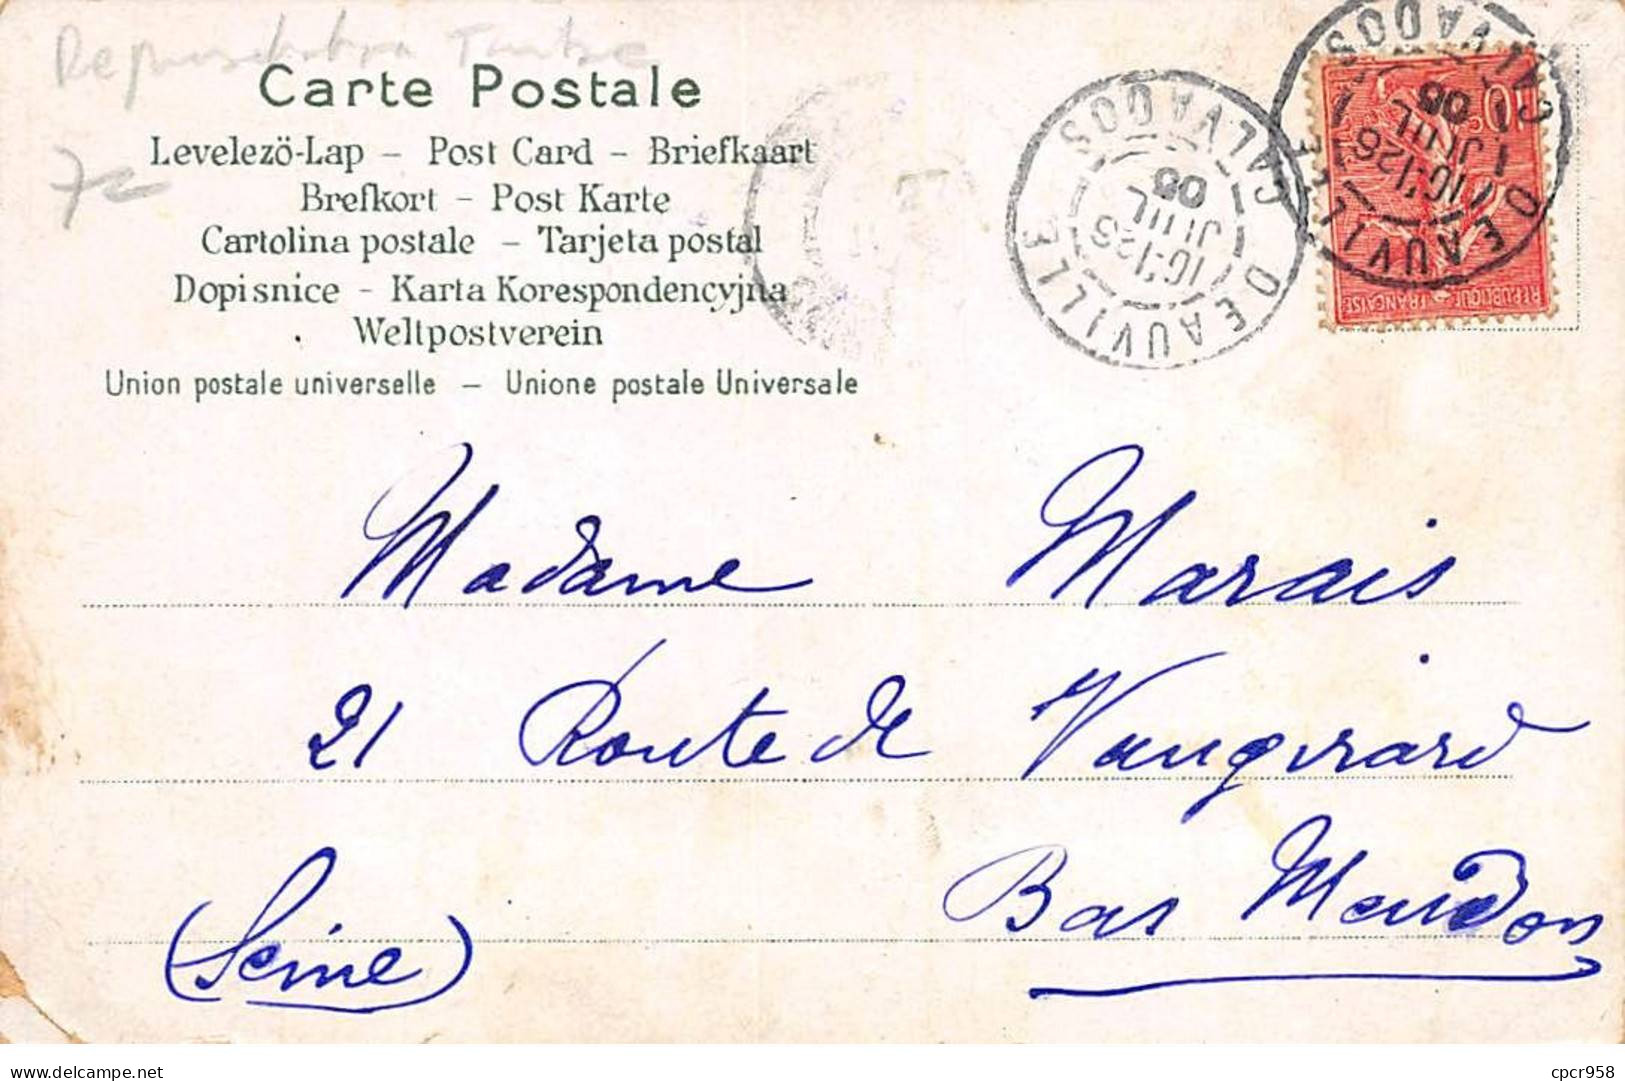 Carte Postale
Levelezö-Lap – Post Card – Briefkaart
Brefkort – Post Karte
Cartolina postale – Tarjeta postal
Dopisnice – Karta Korespondencyjna
Weltpostverein
Union postale universelle – Unione postale Universale
DEAUVILLE CALVADOS
26
JUIL
05
DEAUVILLE CALVADOS
26
JUIL
05
10c
REPUBLIQUE FRANÇAISE
Madame Marais
21 Route de Vaugirard
Bas Meudon
(Seine)
cpcr958